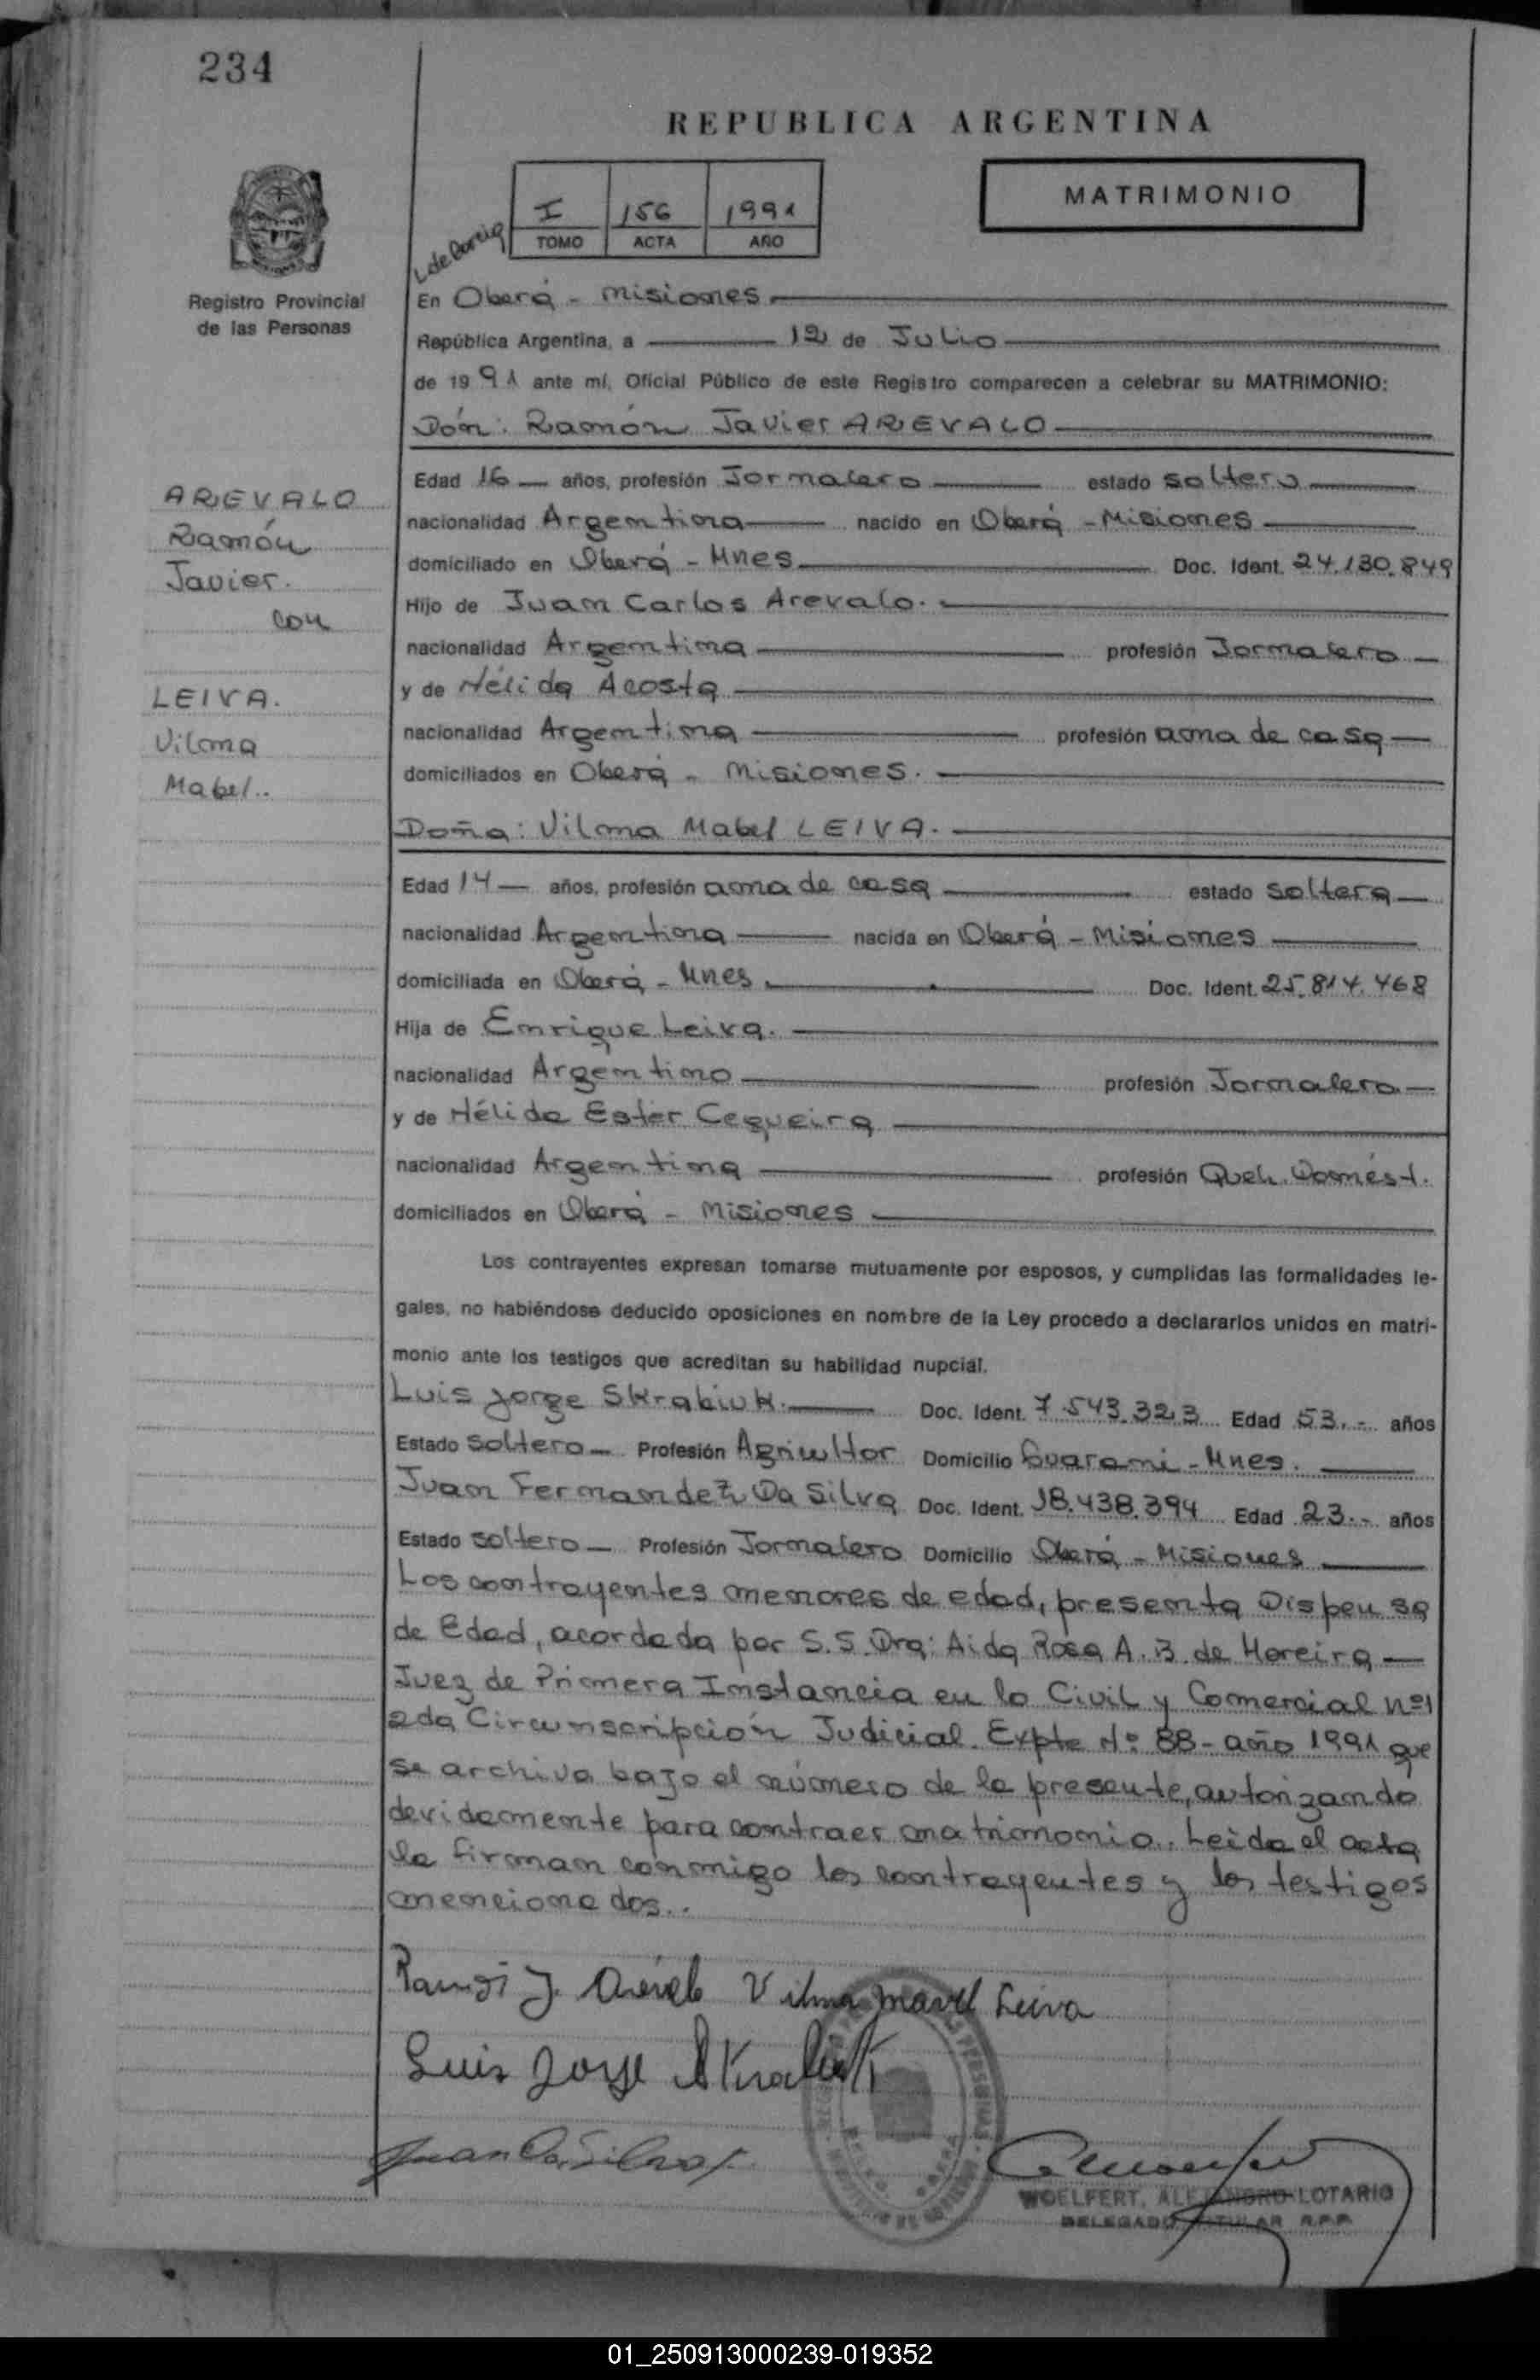 234
REPUBLICA ARGENTINA
I 156 1991
TOMO ACTA AÑO
MATRIMONIO
L de
Registro Provincial
de las Personas
En Oberá - Misiones.
República Argentina, a 12 de Julio
de 1991 ante mí, Oficial Público de este Registro comparecen a celebrar su MATRIMONIO:
Dón: Ramón Javier AREVALO
Edad 16 años, profesión Jornalero estado soltero
nacionalidad Argentina nacido en Oberá - Misiones
domiciliado en Oberá - Mnes. Doc. Ident. 24.130.849
Hijo de Juan Carlos Arevalo.
nacionalidad Argentina profesión Jornalero
y de Nélida Acosta
nacionalidad Argentina profesión ama de casa
domiciliados en Oberá - Misiones.
AREVALO
Ramón
Javier.
con
LEIVA.
Vilma
Mabel..
Doña: Vilma Mabel LEIVA.
Edad 14 años, profesión ama de casa estado soltera
nacionalidad Argentina nacida en Oberá - Misiones
domiciliada en Oberá - Mnes. Doc. Ident. 25.814.468
Hija de Enrique Leiva.
nacionalidad Argentino profesión Jornalero
y de Nélida Ester Cequeira
nacionalidad Argentina profesión Queh. Domést.
domiciliados en Oberá - Misiones
Los contrayentes expresan tomarse mutuamente por esposos, y cumplidas las formalidades le-
gales, no habiéndose deducido oposiciones en nombre de la Ley procedo a declararlos unidos en matri-
monio ante los testigos que acreditan su habilidad nupcial.
Luis Jorge Skrabiuk. Doc. Ident. 7.543.323 Edad 53.- años
Estado soltero Profesión Agricultor Domicilio Guarani - Mnes.
Juan Fernandez Da Silva Doc. Ident. 18.438.394 Edad 23.- años
Estado soltero Profesión Jornalero Domicilio Oberá - Misiones
Los contrayentes menores de edad, presenta Dispensa
de Edad, acordada por S.S. Dra: Aida Rosa A. B. de Moreira
Juez de Primera Instancia en lo Civil y Comercial nº1
2da Circunscripción Judicial. Expte Nº 88 - año 1991 que
se archiva bajo el número de la presente, autorizando
devidamente para contraer matrimonio.. Leída el acta
la firman conmigo los contrayentes y los testigos
mencionados..
Ramón J. Arévalo Vilma Mavel Leiva
Luis Jorge Skrabiuk
Juan Da Silva
WOELFERT, ALEJANDRO LOTARIO
DELEGADO TITULAR R.P.P.
01_250913000239-019352